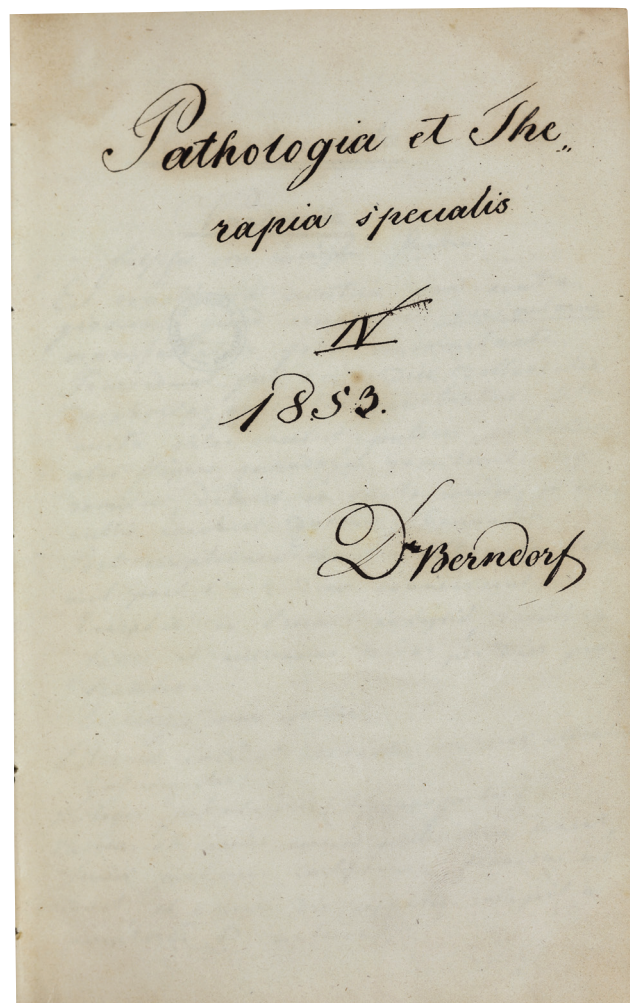 Pathologia et The„
rapia specialis
IV
1853.
Dr Berndorf